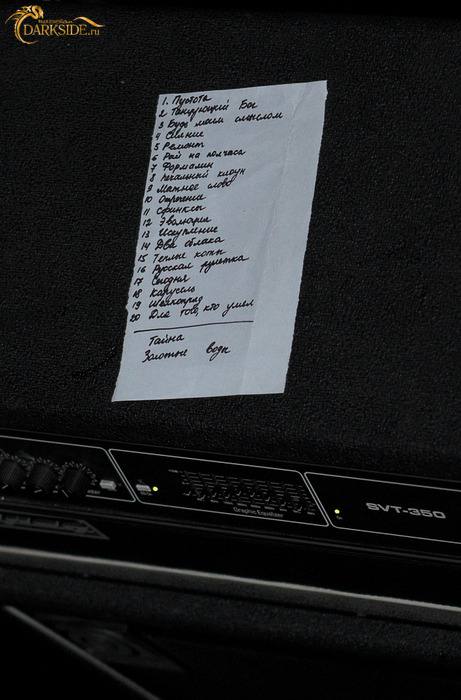 DARKSIDE.ru
1. Пустота
2 Танцующий Бог
3 Будь моим смыслом
4 Сияние
5 Ремонт
6 Рай на полчаса
7 Формалин
8 Печальный клоун
9 Матное слово
10 Отречение
11 Сфинксы
12 Эволюция
13 Искупление
14 Два облака
15 Теплые коты
16 Русская рулетка
17 Сегодня
18 Карусель
19 Шейкоград
20 Для того, кто умел
Тайна
Золотые воды
Graphic Equalizer
SVT-350